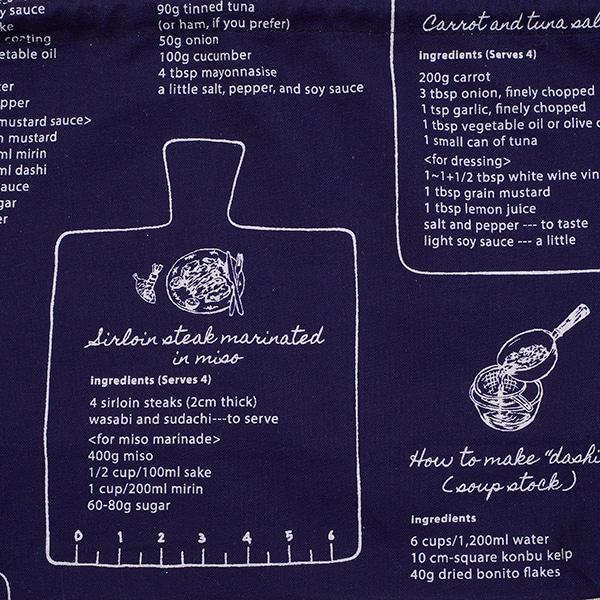 y sauce
ke
coating
etable oil
er
pper
mustard sauce>
n mustard
ml mirin
ml dashi
auce
gar
er
90g tinned tuna
(or ham, if you prefer)
50g onion
100g cucumber
4 tbsp mayonnasise
a little salt, pepper, and soy sauce
Carrot and tuna sal
Ingredients (Serves 4)
200g carrot
3 tbsp onion, finely chopped
1 tsp garlic, finely chopped
1 tbsp vegetable oil or olive o
1 small can of tuna
<for dressing>
1~1+1/2 tbsp white wine vin
1 tbsp grain mustard
1 tbsp lemon juice
salt and pepper --- to taste
light soy sauce --- a little
Sirloin steak marinated
in miso
Ingredients (Serves 4)
4 sirloin steaks (2cm thick)
wasabi and sudachi---to serve
<for miso marinade>
400g miso
1/2 cup/100ml sake
1 cup/200ml mirin
60-80g sugar
0 1 2 3 4 5 6
How to make "dashi
(soup stock)
Ingredients
6 cups/1,200ml water
10 cm-square konbu kelp
40g dried bonito flakes